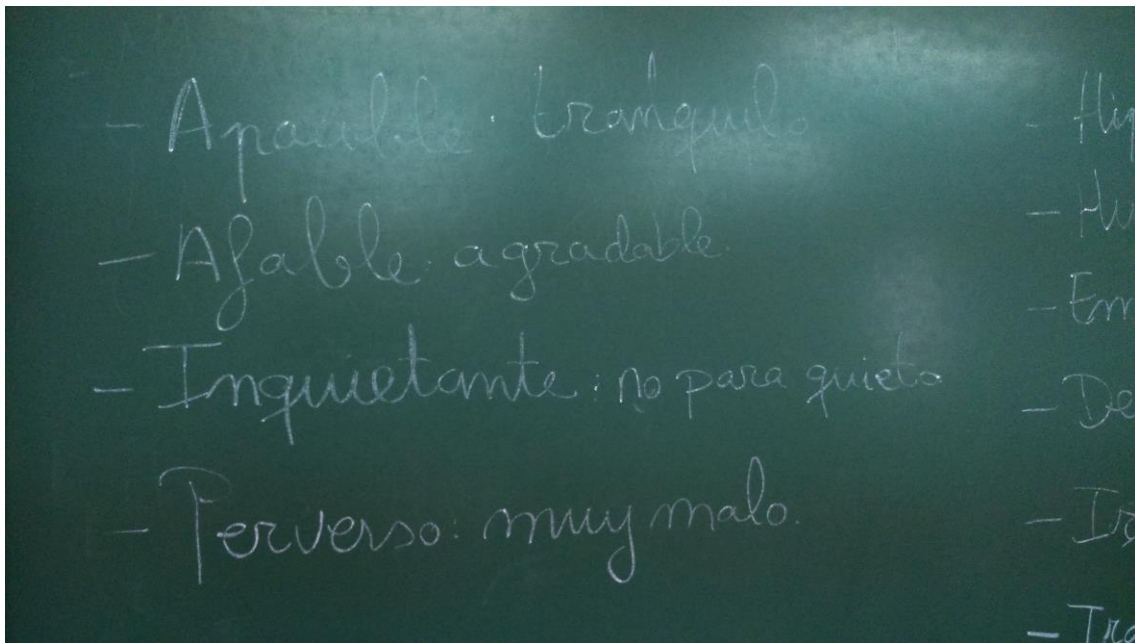 - Apacible: tranquilo
- Afable: agradable.
- Inquietante: no para quieto
- Perverso: muy malo.